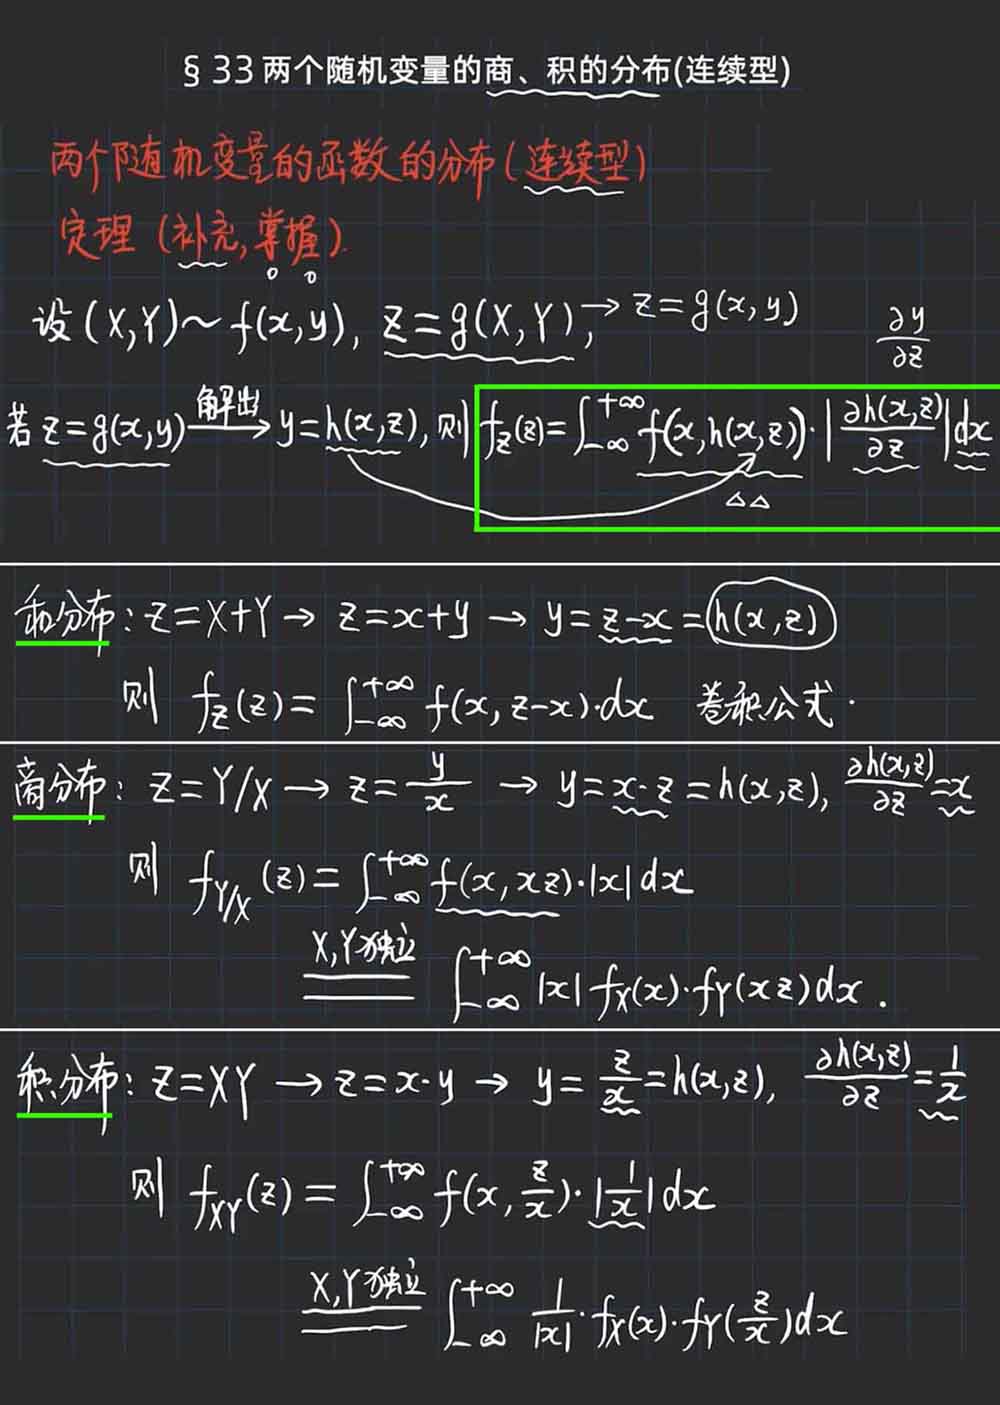 § 33 两个随机变量的商、积的分布(连续型)
两个随机变量的函数的分布(连续型)
定理 (补充,掌握).
设(X,Y)~f(x,y), Z=g(X,Y), → z=g(x,y) ∂y/∂z
若 z=g(x,y) 解出→ y=h(x,z), 则 f_Z(z)=∫_{-∞}^{+∞} f(x,h(x,z))·|∂h(x,z)/∂z|dx
△△
和分布: Z=X+Y → z=x+y → y=z-x=h(x,z)
则 f_Z(z)=∫_{-∞}^{+∞} f(x,z-x)·dx 卷积公式.
商分布: Z=Y/X → z=y/x → y=x·z=h(x,z), ∂h(x,z)/∂z=x
则 f_{Y/X}(z)=∫_{-∞}^{+∞} f(x,xz)·|x|dx
X,Y独立 ∫_{-∞}^{+∞} |x| f_X(x)·f_Y(xz)dx.
积分布: Z=XY → z=x·y → y=z/x=h(x,z), ∂h(x,z)/∂z=1/x
则 f_{XY}(z)=∫_{-∞}^{+∞} f(x,z/x)·|1/x|dx
X,Y独立 ∫_{-∞}^{+∞} 1/|x|·f_X(x)·f_Y(z/x)dx